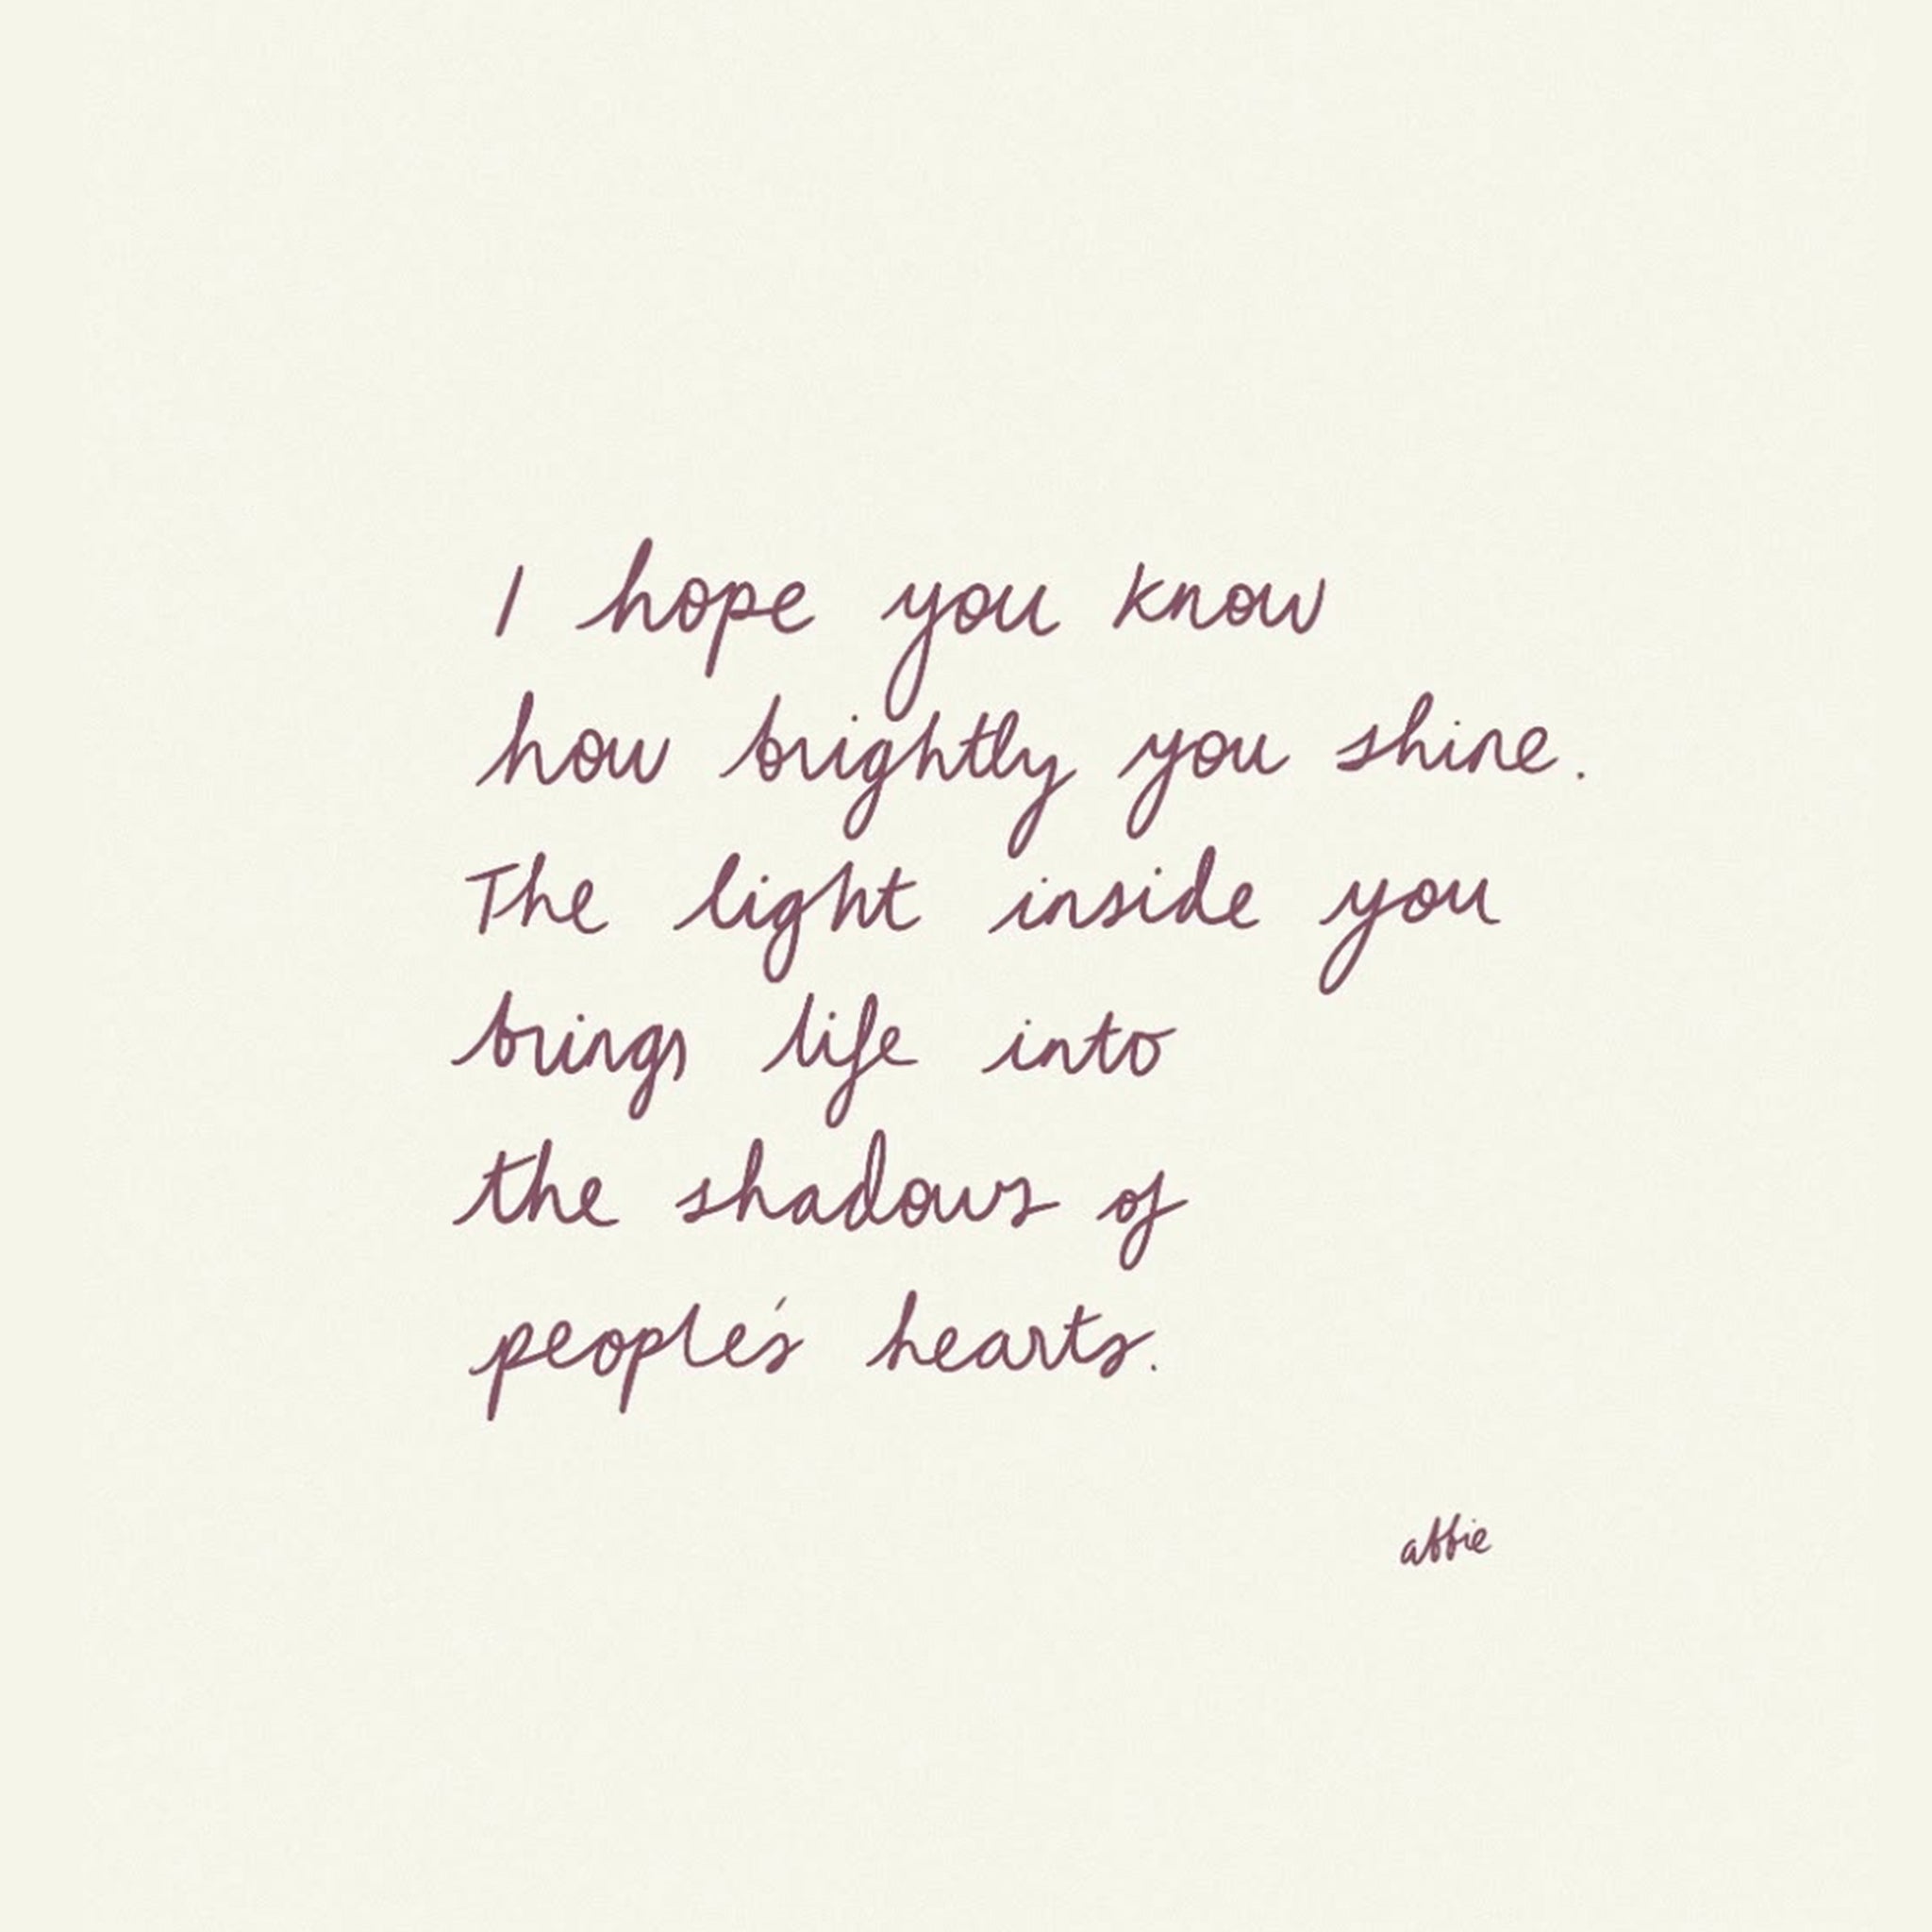 I hope you know
how brightly you shine.
The light inside you
brings life into
the shadows of
people's hearts.
abbie